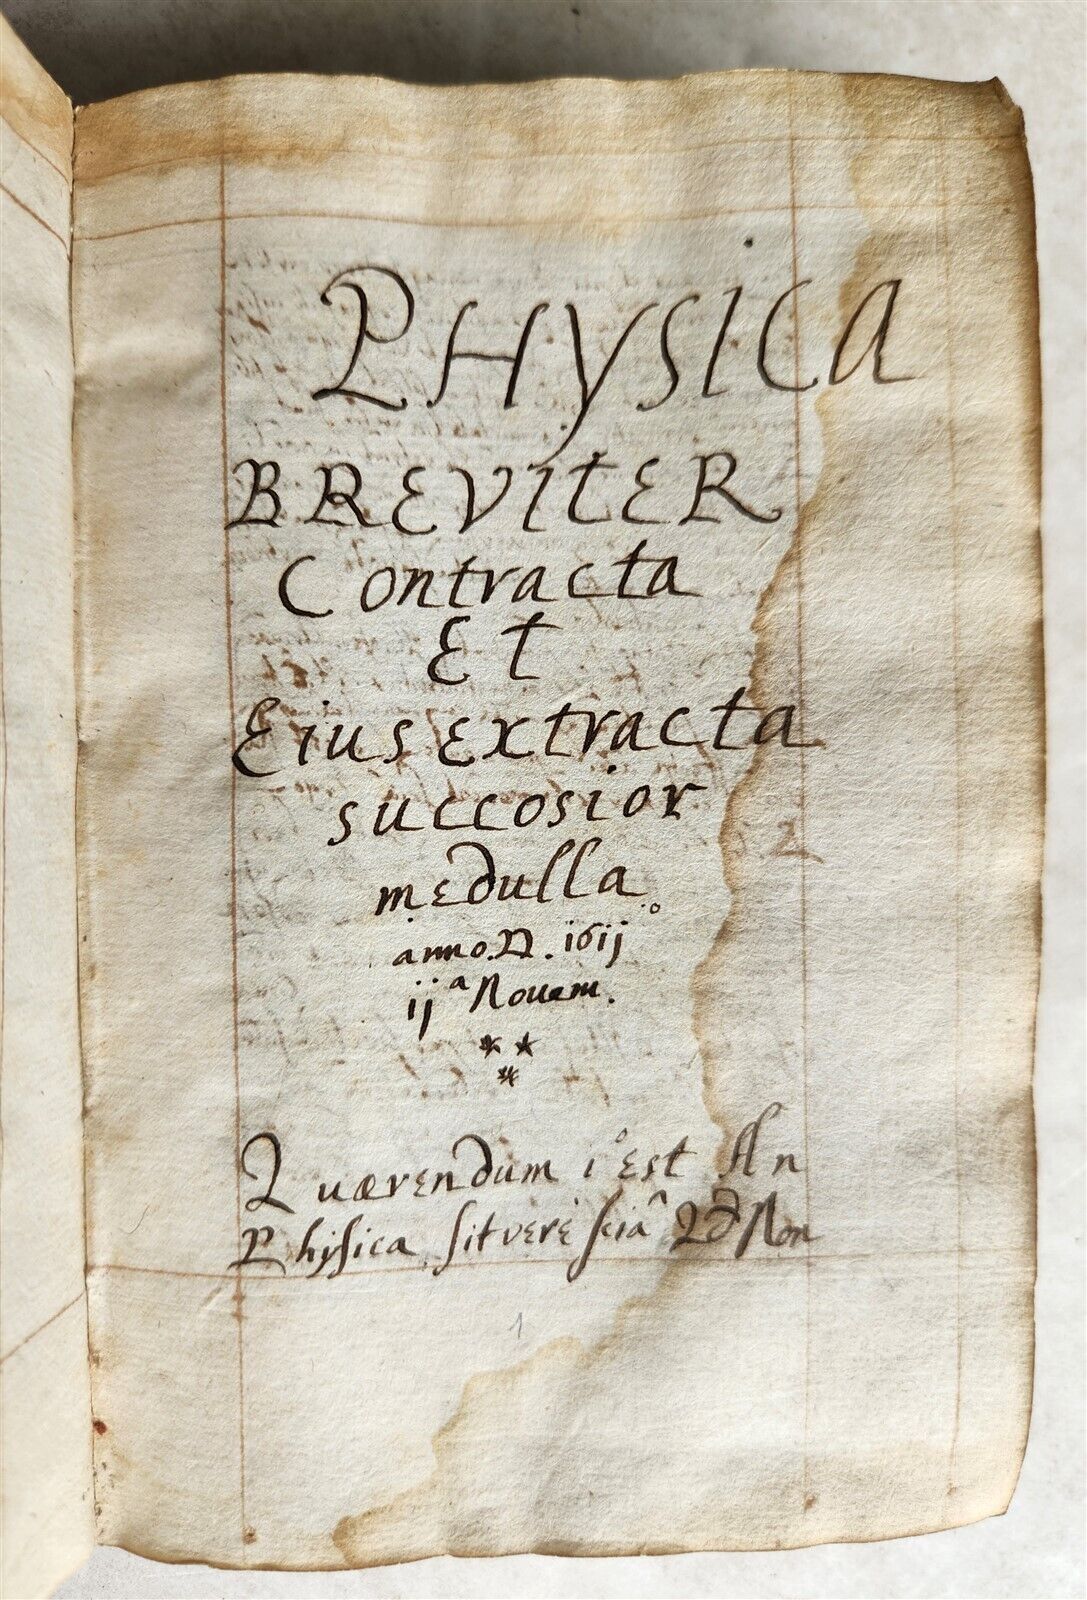 PHYSICA
BREVITER
Contracta
Et
Eius extracta
succosior
medulla
anno. D. 1611.°
ijª Novem.
Quærendum i° est An
Physica sit verè sciâ Qd Non
1